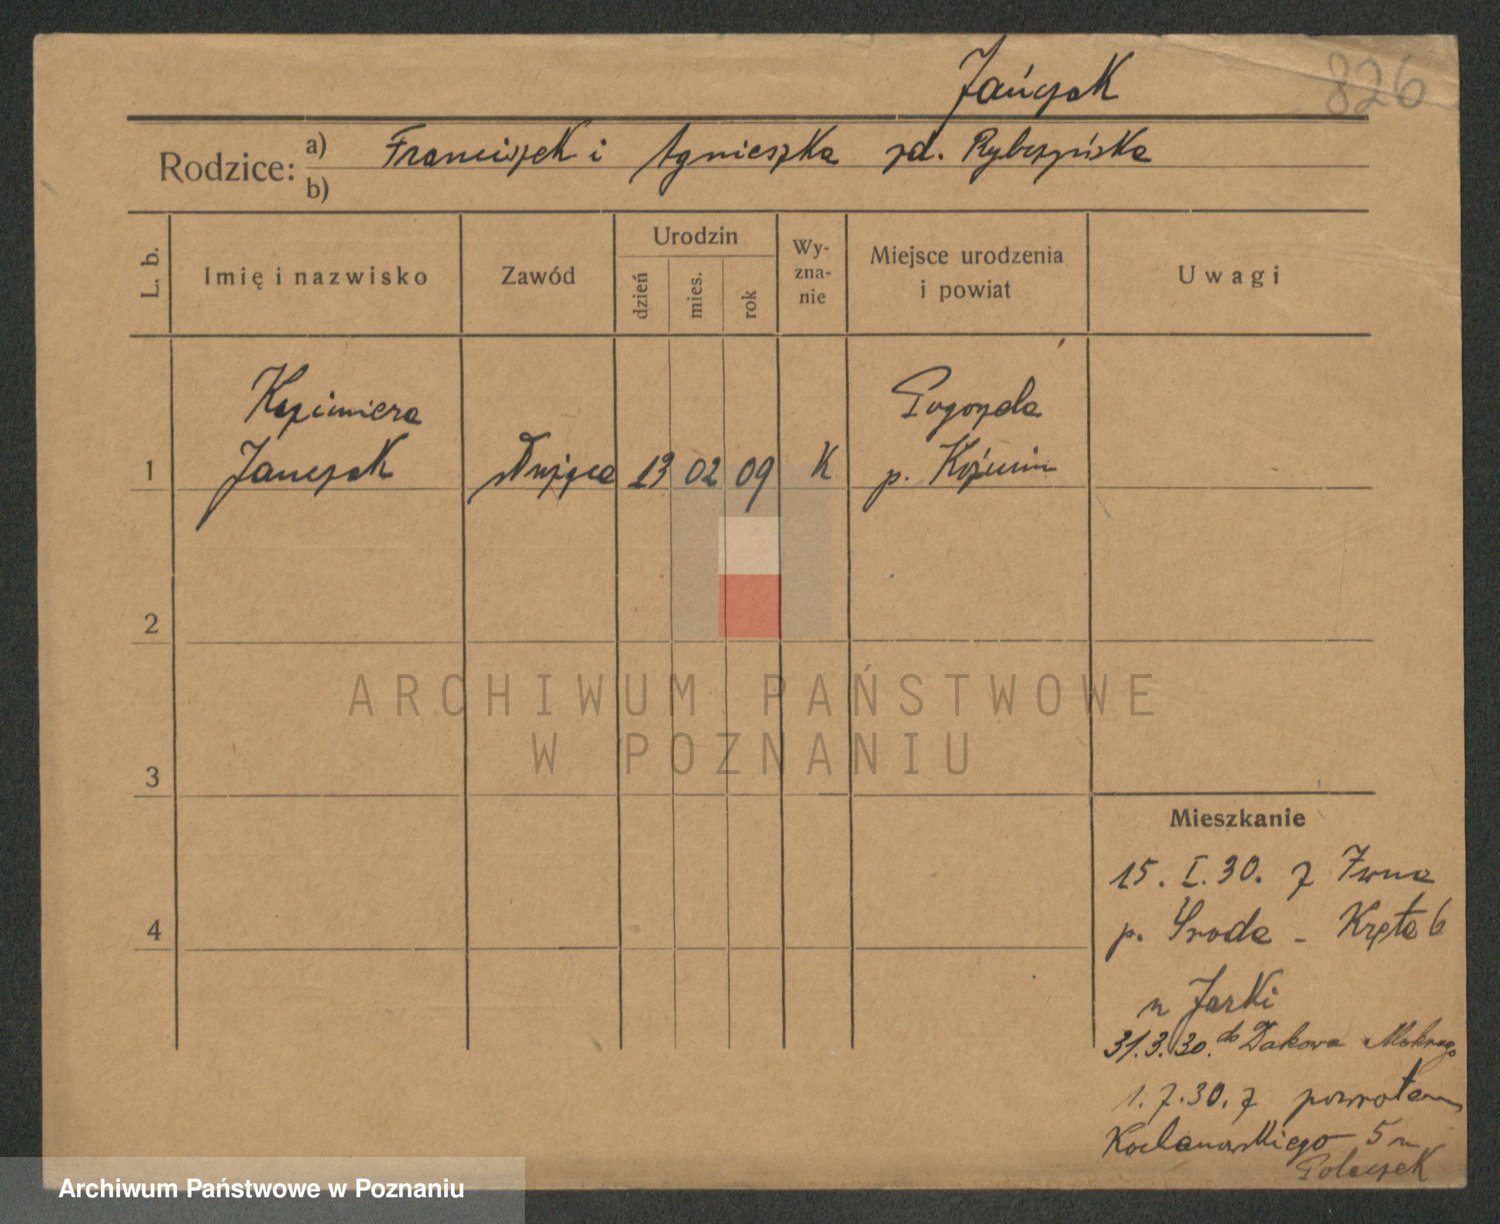 Jańczak
826
Rodzice: a) Franciszek i Agnieszka zd. Rybczyńska
b)
L. b.
Imię i nazwisko
Zawód
Urodzin
dzień
mies.
rok
Wy-
zna-
nie
Miejsce urodzenia
i powiat
Uwagi
Kazimiera
Janczak
1
służąca
13 02 09
K
Pogorzela
p. Koźmin
2
3
4
ARCHIWUM PAŃSTWOWE
W POZNANIU
Mieszkanie
15. I. 30. z
p. Środa - Kręta 6
u Jarki
31.3.30. do Dakowa Mokrego
1.7.30. z powrotem
Kochanowskiego 5 u
Polaczek
Archiwum Państwowe w Poznaniu